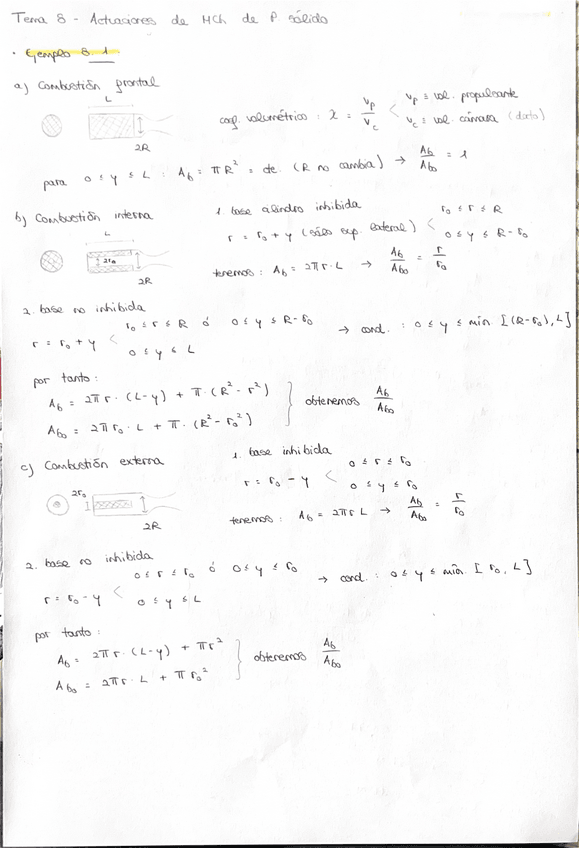 Tema 8 - Actuaciones de MCh de P sólido
· Ejemplo 8.1
a) Combustión frontal
L
2R
coef. volumétrico : X = Vp / Vc < Vp ≡ vol. propulsante
Vc ≡ vol. cámara (dato)
para 0 ≤ y ≤ L : Ab = πR² = cte. (R no cambia) → Ab / Ab0 = 1
b) Combustión interna
L
2r0
2R
1. base cilindro inhibida
r = r0 + y (sólo sup. lateral) < r0 ≤ r ≤ R
0 ≤ y ≤ R - r0
tenemos : Ab = 2πr · L → Ab / Ab0 = r / r0
2. base no inhibida
r = r0 + y < r0 ≤ r ≤ R ó 0 ≤ y ≤ R - r0
0 ≤ y ≤ L
→ cond. : 0 ≤ y ≤ mín. [(R - r0), L]
por tanto :
Ab = 2πr · (L-y) + π · (R² - r²)
Ab0 = 2πr0 · L + π · (R² - r0²)
} obtenemos Ab / Ab0
c) Combustión externa
2r0
2R
1. base inhibida
r = r0 - y < 0 ≤ r ≤ r0
0 ≤ y ≤ r0
tenemos : Ab = 2πr L → Ab / Ab0 = r / r0
2. base no inhibida
r = r0 - y < 0 ≤ r ≤ r0 ó 0 ≤ y ≤ r0
0 ≤ y ≤ L
→ cond. : 0 ≤ y ≤ mín. [ r0, L ]
por tanto :
Ab = 2πr · (L-y) + πr²
Ab0 = 2πr · L + πr0²
} obtenemos Ab / Ab0